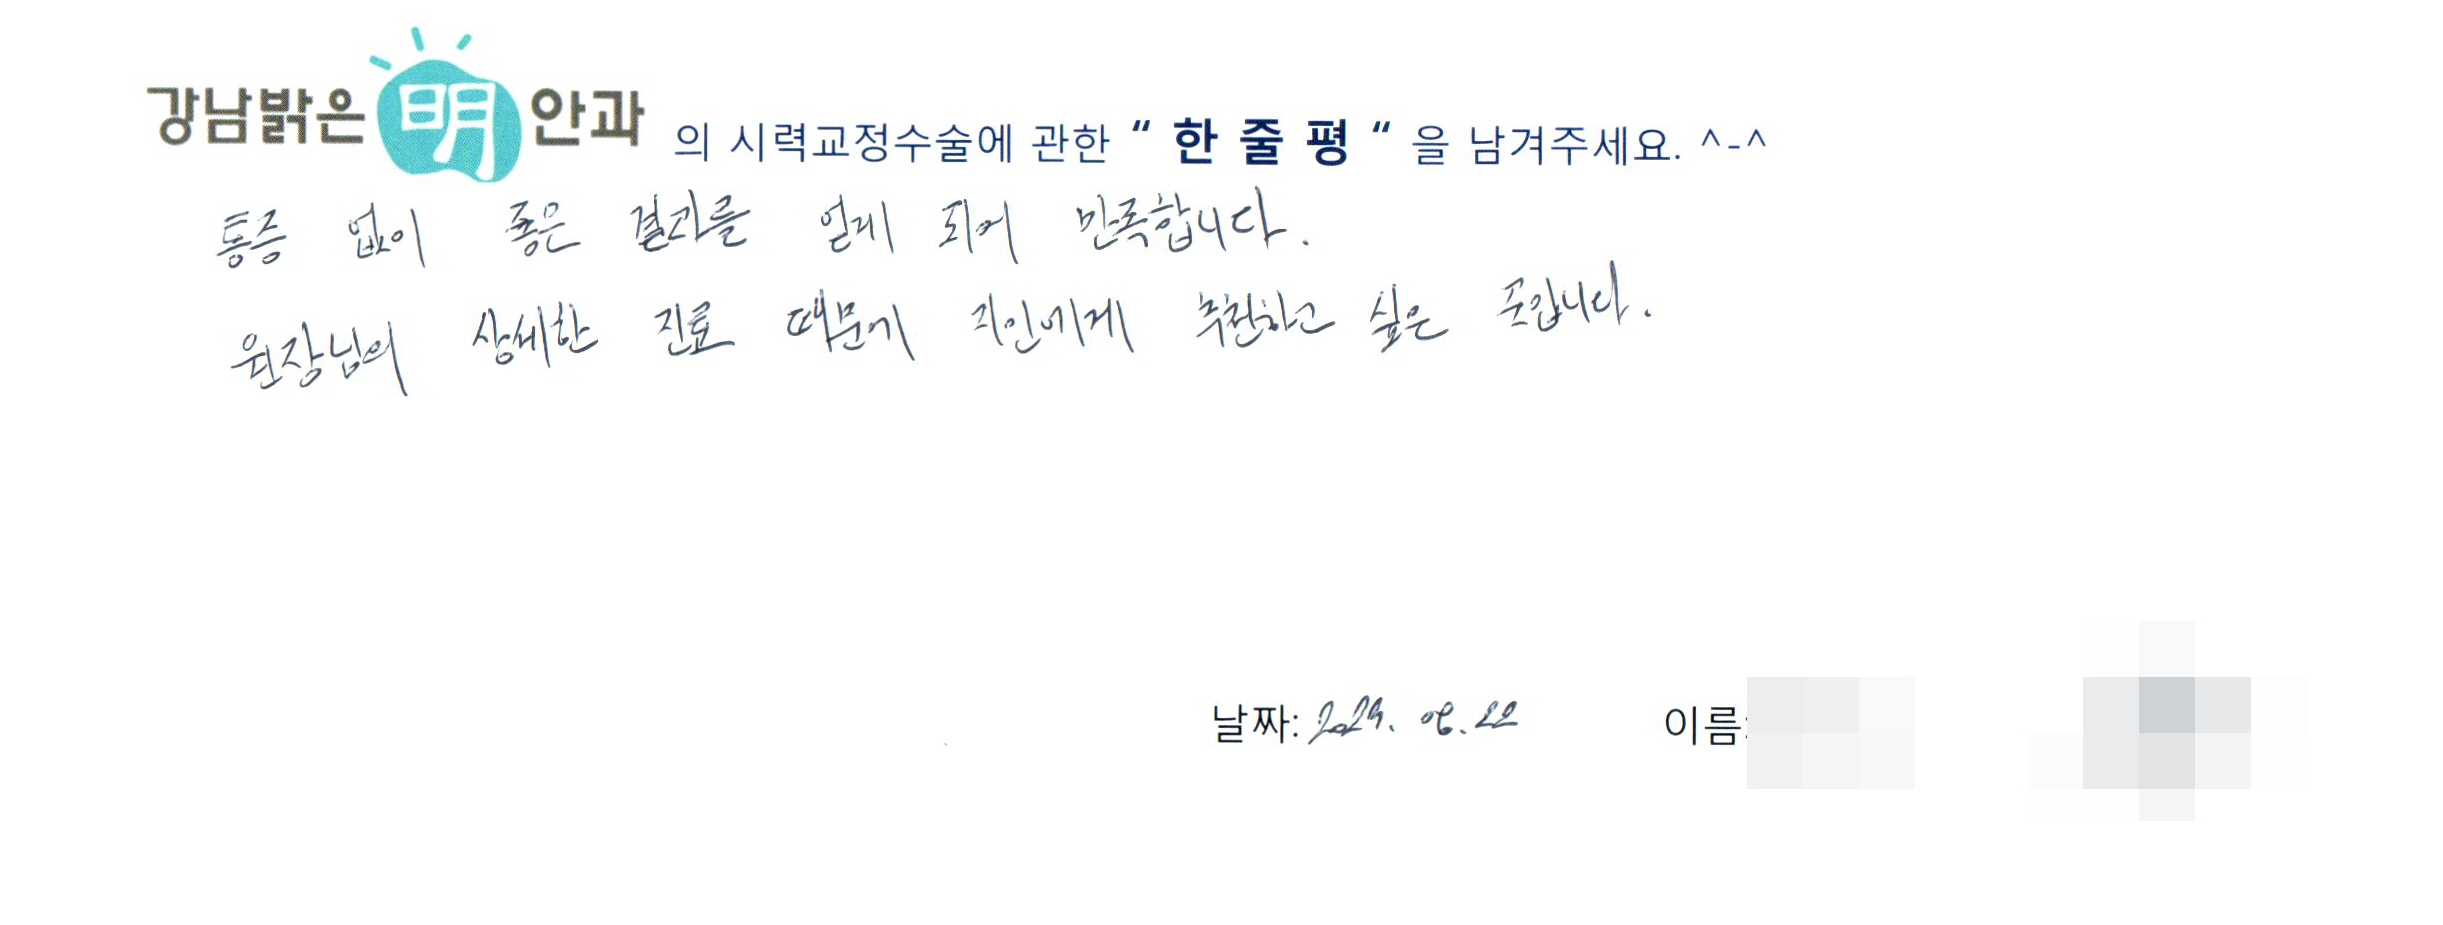 강남밝은明안과 의 시력교정수술에 관한 “ 한 줄 평 “ 을 남겨주세요. ^-^
통증 없이 좋은 결과를 얻게 되어 만족합니다.
원장님의 상세한 진료 때문에 지인에게 추천하고 싶은 곳입니다.
날짜: 2024. 06. 22 이름: